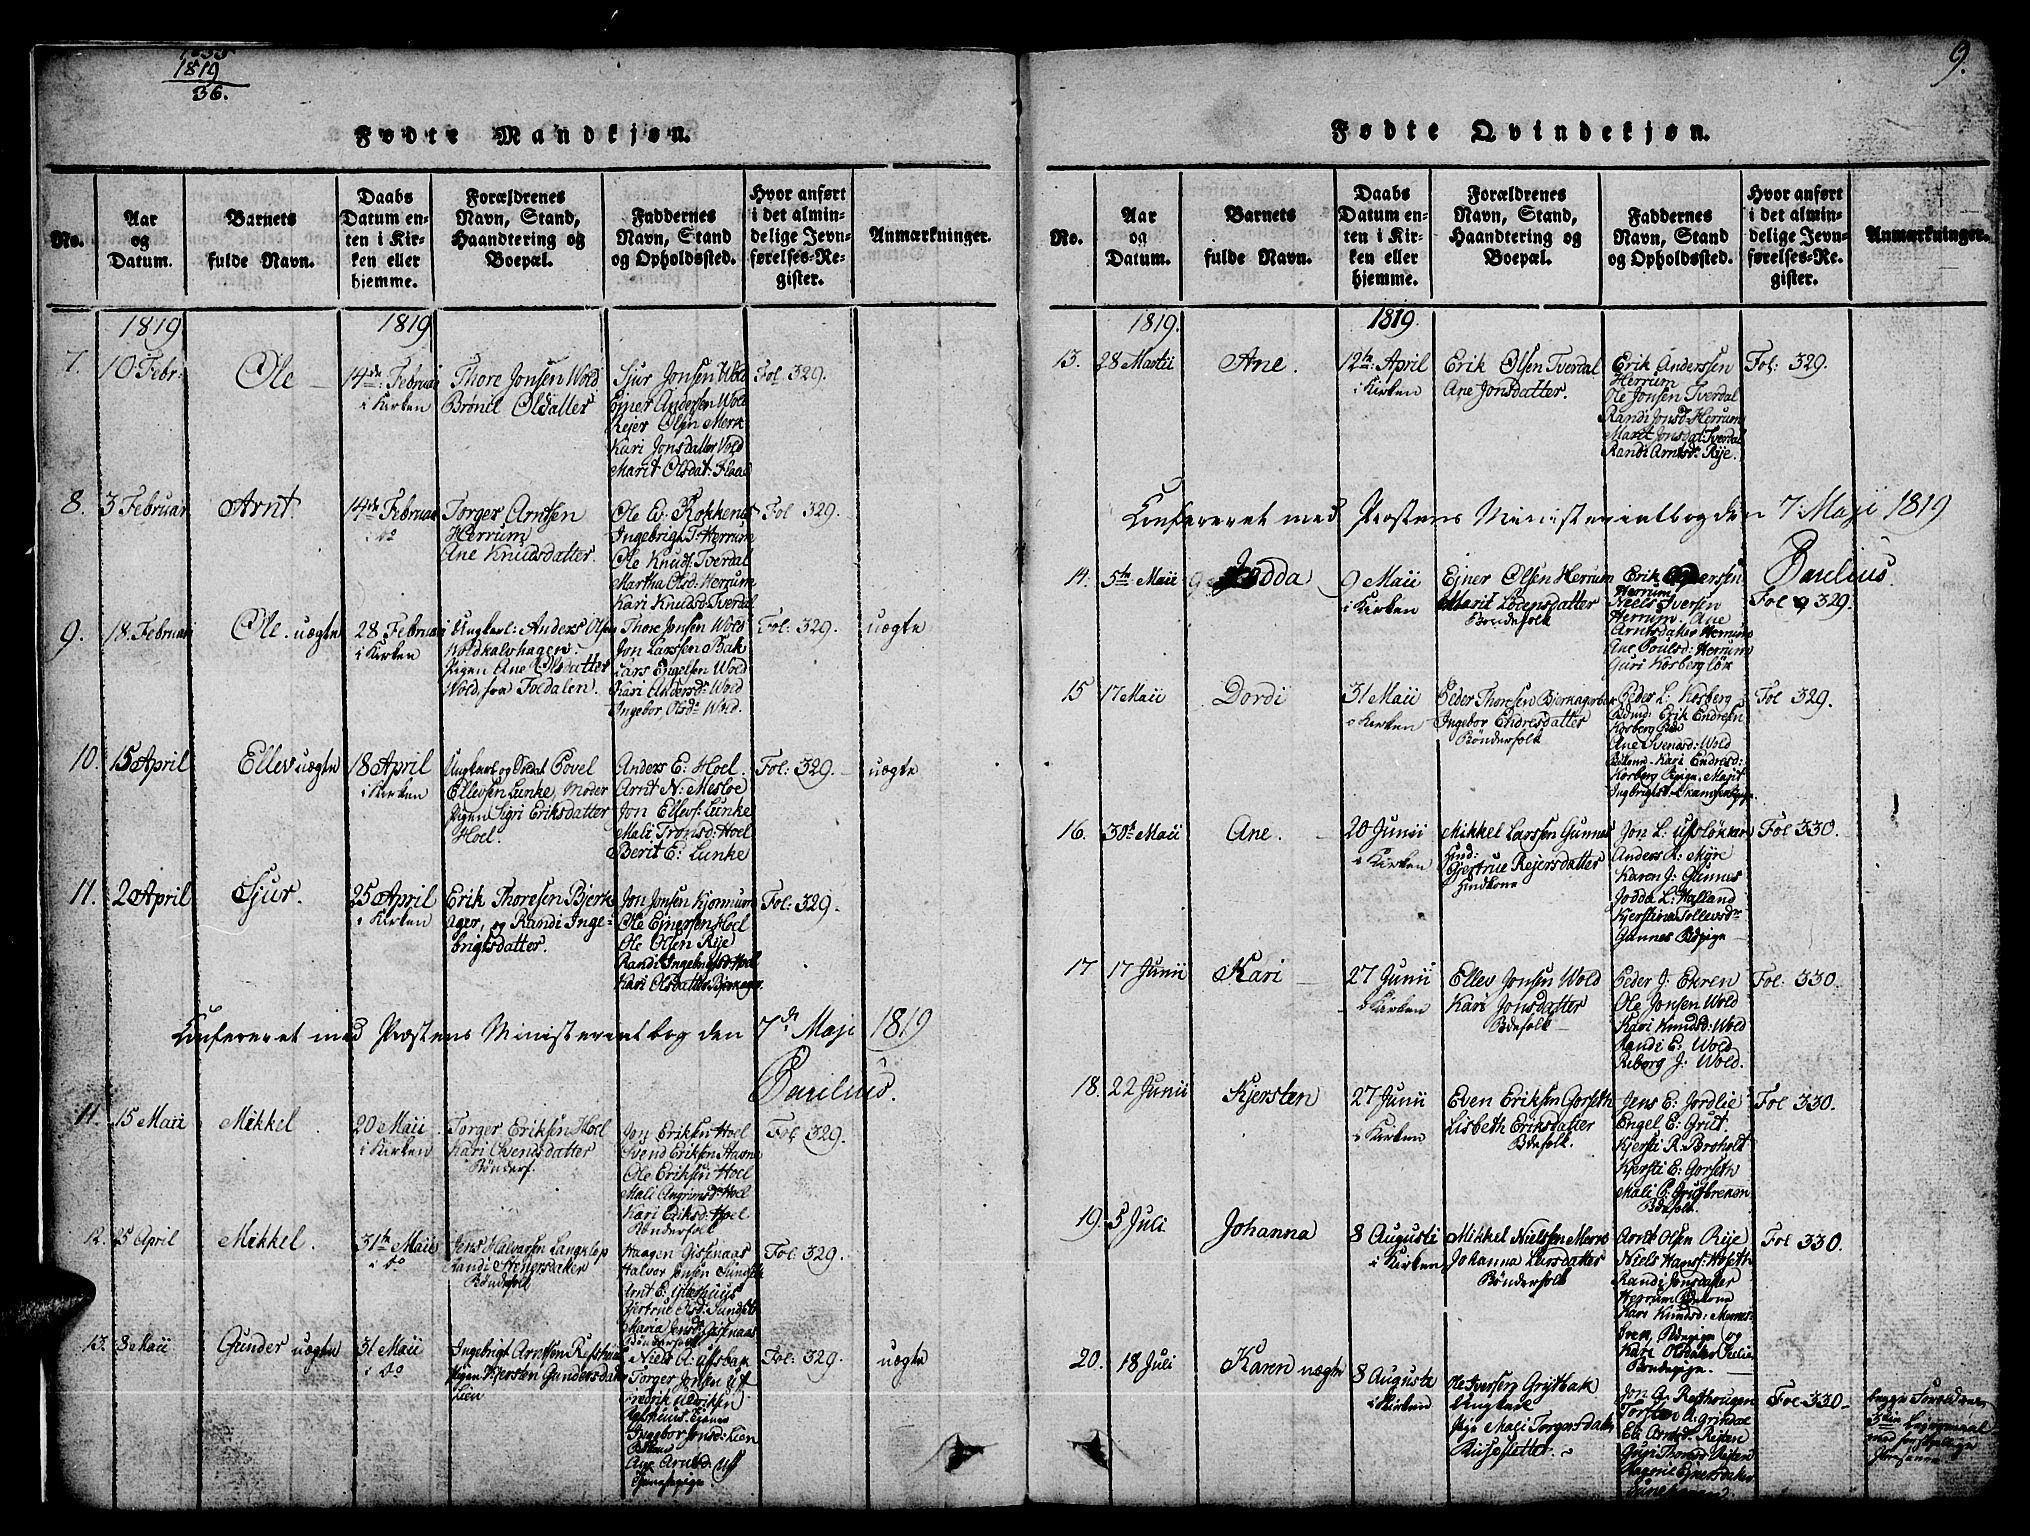 1819
36.
Fødte Mandkjøn.
No.
Aar
og
Datum.
Barnets
fulde Navn.
Daabs
Datum en-
ten i Kir-
ken eller
hjemme.
Forældrenes
Navn, Stand,
Haandtering og
Boepæl.
Faddernes
Navn, Stand
og Opholdssted.
Hvor anført
i det almin-
delige Jevn-
førelses-Re-
gister.
Anmærkninger.
1819
1819
7.
10 Febr:
Ole
14de Februar
i Kirken
Thore Jonsen Wold
Brønil Olsdatter
Sjur Jonsen Wold
Ejner Andersen Wold
Rejer Olsen Merk
Kari Jonsdatter Wold
Marit Olsdat:
Fol 329.
8.
3 Februar
Arnt
14de Februar
i do
Torger Arntsen
Herrum
Ane Knudsdatter.
Ole E: Rokkenes
Ingebrigt T: Herrum
Ole Knuds: Tverdal
Martha Olsd: Herrum
Kari Knudsd: Tverdal
Fol 329.
9.
18 Februar
Ole uægte
28 Februar
i Kirken
Ungkarl: Anders Olsen
Woldkalvhagen
Pigen Ane Olsdatter
Wold, fra Foldalen.
Thore Jonsen Wold
Jon Larssen Bak
Lars Engelsen Wold
Kari Andersd: Wold
Ingebor Olsdr Wold.
Fol: 329.
uægte
10.
15 April
Ellev uægte
18 April
i Kirken
Ungkarl og Soldat Povel
Ellevsen Lunke, Moder
Pigen Sigri Eriksdatter
Hoel.
Anders E: Hoel.
Arnt N: Mesloe
Jon Ellevs: Lunke
Mali Tronsd: Hoel
Berit E: Lunke
Fol: 329.
uægte
11.
2 April
Sjur.
25 April
i Kirken
Erik Thoresen Bjerk
ager, og Randi Inge-
brigtsdatter.
Jon Jonsen Kjonnum
Ole Ejnersen Hoel
Ole Olsen Rije
Randi Ingebrigtsd: Hoel
Kari Olsdatter Bjerkager
Fol: 329.
Confereret med Præstens Ministerialbog den 7de Maji 1819
Barelius.
11.
15 Maii
Mikkel
20 Maii
i Kirken
Torger Eriksen Hoel
Kari Svendsdatter
Bønderf.
Jon Eriksen Hoel
Svend Eriksen Havn
Ole Eriksen Hoel
Mali Angrimsd: Hoel
Kari Eriksd: Hoel
Bønderfolk
Fol 329.
12.
25 April
Mikkel.
31te Maii
i do
Jens Halvorsen Langklep
Randi Stenersdatter
Bønderfolk
Haagen Gisenaas
Halvor Jonsen Sundset
Arnt E:
Gjertrue Olsd: Sundset
Maria Jensdr: Gisenaas
Bønderfolk
Fol: 329.
13.
8 Maii
Gunder uægte
31 Maii
i do
Ingebrigt Arntsen
Pigen Kjersten Gundersdatter
Lien
Niels A:
Torger Jonsen
Ingebor Jonsd: Lien
Ane Arntsd:
Fol: 329.
uægte
9.
Fødte Qvindekjøn.
No.
Aar
og
Datum.
Barnets
fulde Navn.
Daabs
Datum en-
ten i Kir-
ken eller
hjemme.
Forældrenes
Navn, Stand,
Haandtering og
Boepæl.
Faddernes
Navn, Stand
og Opholdssted.
Hvor anført
i det almin-
delige Jevn-
førelses-Re-
gister.
Anmærkninger.
1819.
1819.
13.
28 Martii
Ane.
12te April
i Kirken
Erik Olsen Tverdal
Ane Jonsdatter.
Erik Anderssen
Herrum
Ole Jonsen Tverdal
Randi Jonsd: Herrum
Marit Jonsdat: Tverdal
Randi Arntsd: Rije.
Fol: 329.
Confereret med Præstens Ministerialbog den 7 Maji 1819
Barelius.
14.
5te Maii
Jodda
9 Maii
i Kirken
Ejner Olsen Herrum
Marit Lorensdatter
Bøndefolk
Erik
Herrum
Niels Iversen
Herrum. Ane
Arntsdatter Herrum
Ane Poulsd: Herrum
Guri Korberg løk
Fol 329.
15
17 Maii
Dordi
31 Maii
i Kirken
Peder Thoresen Bjerkager
Ingebor Endresdatter
Bønderfolk
Peder L: Korberg
Bdmd: Erik Endresen
Korberg
Ane Svendsd: Wold
Kari Endresd:
Korberg Marit
Fol 329.
16.
30te Maii
Ane.
20 Junii
i Kirken
Mikkel Larsen Gunnes
Hmd:
Gjertrue Rejersdatter
Hmdkone
Jon L:
Anders R: Myre
Karen J: Gunnes
Jodda L: Halland
Kjerstina Tollevsdr
Gunnes Bdpige
Fol 330.
17
17 Junii
Kari
27 Junii
i Kirken
Ellev Jonsen Wold
Kari Jonsdatter
Bdefolk
Peder J: Ekren
Ole Jonsen Wold
Kari Knudsd: Wold
Randi E: Wold
Reborg J: Wold.
Fol: 330.
18.
22 Junii
Kjersten
27 Junii
i Kirken
Even Eriksen Gorseth
Lisbeth Eriksdatter
Bdefolk.
Jens E: Jordlie
Engel E: Grut
Kjersti R. Broholt
Kjersti E: Gorseth
Mali E:
Bdefolk.
Fol 330.
19.
5 Juli
Johanna
8 Augusti
i Kirken
Mikkel Nielssen
Johanna Larsdatter
Bønderfolk
Arnt Olsen Rije
Niels Hans:
Randi Jonsdatter
Herrum Bdekone
Kari Knudsd:
Bdepige og
Kari Olsdatter
Bøndepige.
Fol 330.
20.
18 Juli
Karen uægte
8 Auguste
i Kirken
Ole Iversen Grytbak
Ungkarl
Pige Mali Torgersdatter
Jon A:
Torsten A: Grindal
Eli Arntsd:
Guri Thoresd:
Magnil Ejnersdatter
Fol 330.
begge Forældrenes